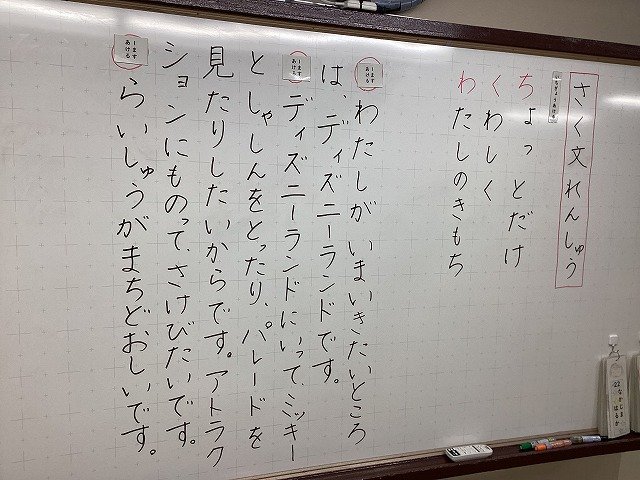 さく文れんしゅう
いちぎょうあける
ちょっとだけ
くわしく
わたしのきもち
1ます
あける
わたしがいまいきたいところ
は、ディズニーランドです。
1ます
あける
ディズニーランドにいって、ミッキー
としゃしんをとったり、パレードを
見たりしたいからです。アトラク
ションにものって、さけびたいです。
1ます
あける
らいしゅうがまちどおしいです。